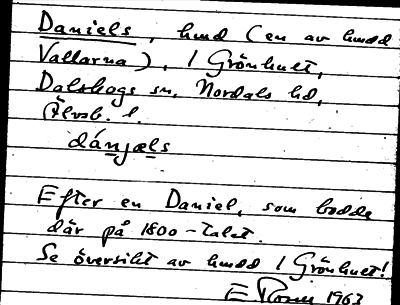 Daniels, hmd (en av hmdd
Vallarna), / Grönhult,
Dalskogs sn, Nordals hd,
Älvsb. l.
dánjæls
Efter en Daniel, som bodde
där på 1800-talet.
Se översikt av hmdd / Grönhult!
E Rosén 1963